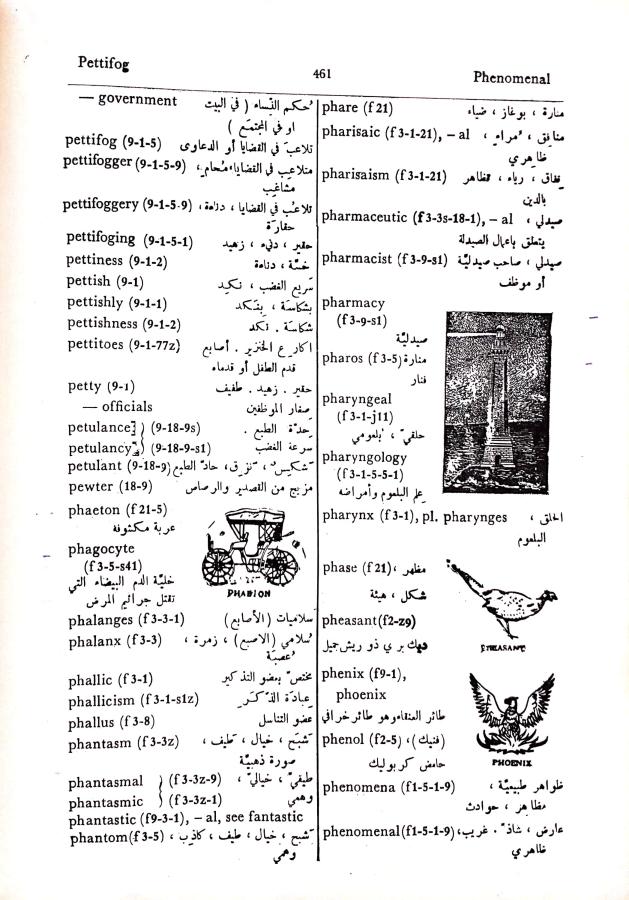 Pettifog
461
Phenomenal
— government حكم النّساء ( في البيت
او في المجتمع )
pettifog (9-1-5) تلاعبَ في القضايا أو الدعاوى
pettifogger (9-1-5-9) متلاعب في القضايا، مُحامٍ،
مشاغب
pettifoggery (9-1-5-9) تلاعُب في القضايا ، دناءة ،
حقارة
pettifoging (9-1-5-1) حقير ، دنيء ، زهيد
pettiness (9-1-2) خسّة ، دناءة
pettish (9-1) سَريع الغضب ، نكيد
pettishly (9-1-1) بشكاسَة ، بنكد
pettishness (9-1-2) شكاسَة . نكد
pettitoes (9-1-77z) اكارع الخنزير . أصابع
قدم الطفل أو قدماه
petty (9-1) حقير . زهيد . طفيف
— officials صغار الموظفين
petulance } (9-18-9s) حِدّة الطبع .
petulancy } (9-18-9-s1) سرعة الغضب
petulant (9-18-9) شكيس ، نزق، حادّ الطبع
pewter (18-9) مزيج من القصدير والرصاص
phaeton (f 21-5)
عربة مكشوفة
PHAEION
phagocyte
(f 3-5-s41)
خليّة الدم البيضاء التي
تقتل جراثيم المرض
phalanges (f 3-3-1) سلاميات (الأصابع)
phalanx (f 3-3) سُلامي (الاصبع) ، زمرة ،
عُصبَة
phallic (f 3-1) مختصّ بعضو التذكير
phallicism (f 3-1-s1z) عِبادَة الذّكَر
phallus (f 3-8) عضو التناسل
phantasm (f 3-3z) شبَح ، خيال ، طَيف ،
صورة ذهنيّة
phantasmal } (f 3-3z-9) طيفيّ ، خياليّ ،
phantasmic } (f 3-3z-1) وهمي
phantastic (f9-3-1), – al, see fantastic
phantom (f 3-5) شبح ، خيال ، طيف ، كاذب ،
وهمي
phare (f 21) منارة ، بوغاز ، ضياء
pharisaic (f 3-1-21), – al منافِق ، مُراءٍ ،
ظاهري
pharisaism (f 3-1-21) نِفاق ، رياء ، تظاهر
بالدين
pharmaceutic (f 3-3s-18-1), – al صيدلي ،
يتعلق باعمال الصيدلة
pharmacist (f 3-9-s1) صيدلي ، صاحب صيدليّة
أو موظف
pharmacy
(f 3-9-s1)
صيدليّة
pharos (f 3-5) منارة
فنار
pharyngeal
(f 3-1-j11)
حلقيّ ، بلعومي
pharyngology
(f 3-1-5-5-1)
علم البلعوم وأمراضه
pharynx (f 3-1), pl. pharynges الحلق ،
البلعوم
phase (f 21) مظهر ،
شكل ، هيئة
pheasant (f2-z9)
ديك بري ذو ريش جميل
PHEASANT
phenix (f9-1),
phoenix
طائر العنقاء وهو طائر خرافي
phenol (f2-5) (فنيك) ،
حامض كربوليك
PHOENIX
phenomena (f1-5-1-9) ظواهر طبيعيّة ،
مظاهر ، حوادث
phenomenal (f1-5-1-9) عارض ، شاذّ . غريب،
ظاهري